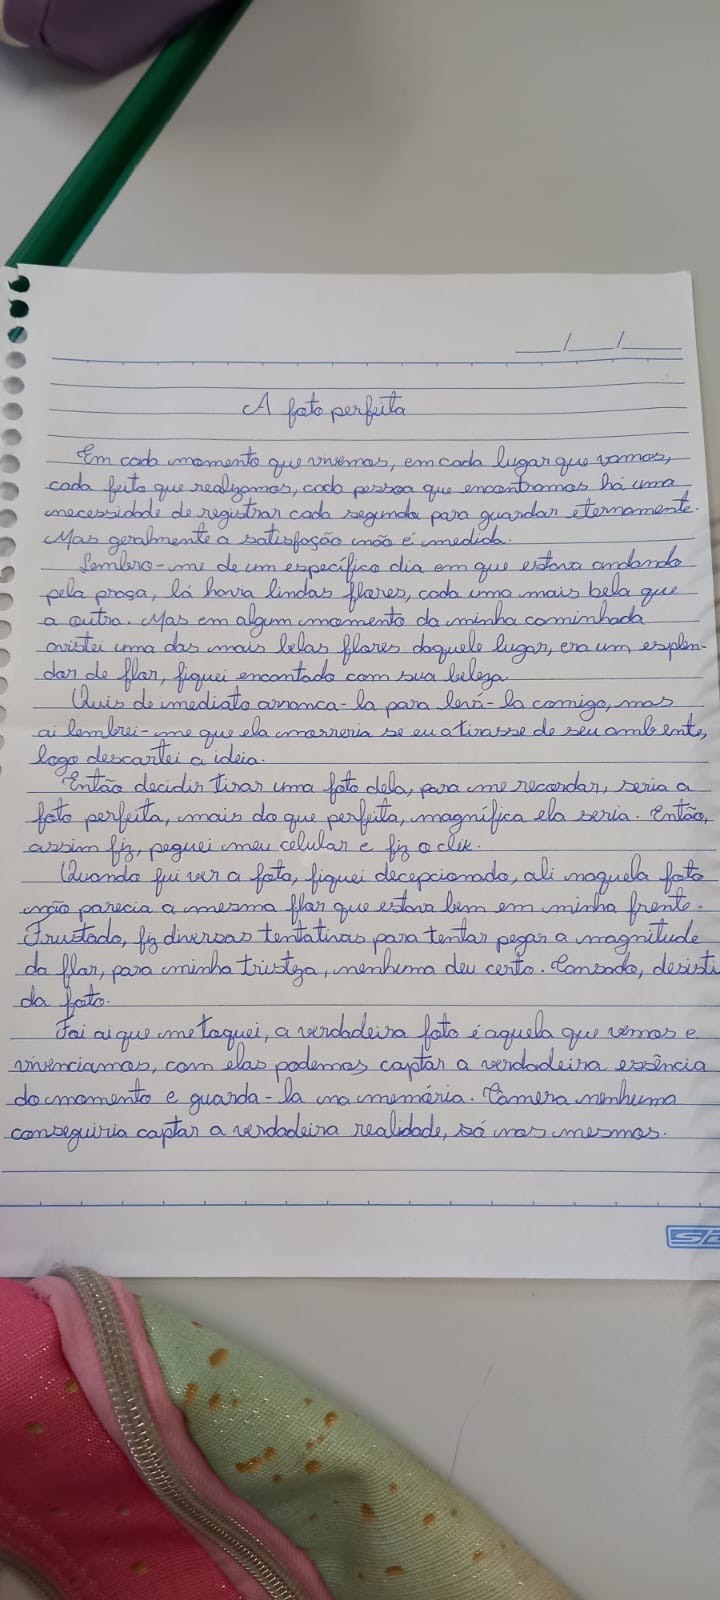 __/__/__
A foto perfeita
Em cada momento que vivemos, em cada lugar que vamos,
cada feito que realizamos, cada pessoa que encontramos há uma
necessidade de registrar cada segundo para guardar eternamente.
Mas geralmente a satisfação não é medida.
Lembro-me de um específico dia em que estava andando
pela praça, lá havia lindas flores, cada uma mais bela que
a outra. Mas em algum momento da minha caminhada
avistei uma das mais belas flores daquele lugar, era um esplen-
dor de flor, fiquei encantado com sua beleza
Quis de imediato arranca-la para levá-la comigo, mas
ai lembrei-me que ela morreria se eu a tirasse de seu ambiente,
logo descartei a ideia.
Então decidir tirar uma foto dela, para me recordar, seria a
foto perfeita, mais do que perfeita, magnífica ela seria. Então,
assim fiz, peguei meu celular e fiz o clik.
Quando fui ver a foto, fiquei decepcionado, ali naquela foto
não parecia a mesma flor que estava bem em minha frente.
Frustado, fiz diversas tentativas para tentar pegar a magnitude
da flor, para minha tristeza, nenhuma deu certo. Cansado, desisti
da foto.
Foi ai que me toquei, a verdadeira foto é aquela que vemos e
vivenciamos, com elas podemos captar a verdadeira essência
do momento e guarda-la na memória. Camera nenhuma
conseguiria captar a verdadeira realidade, só nos mesmos.